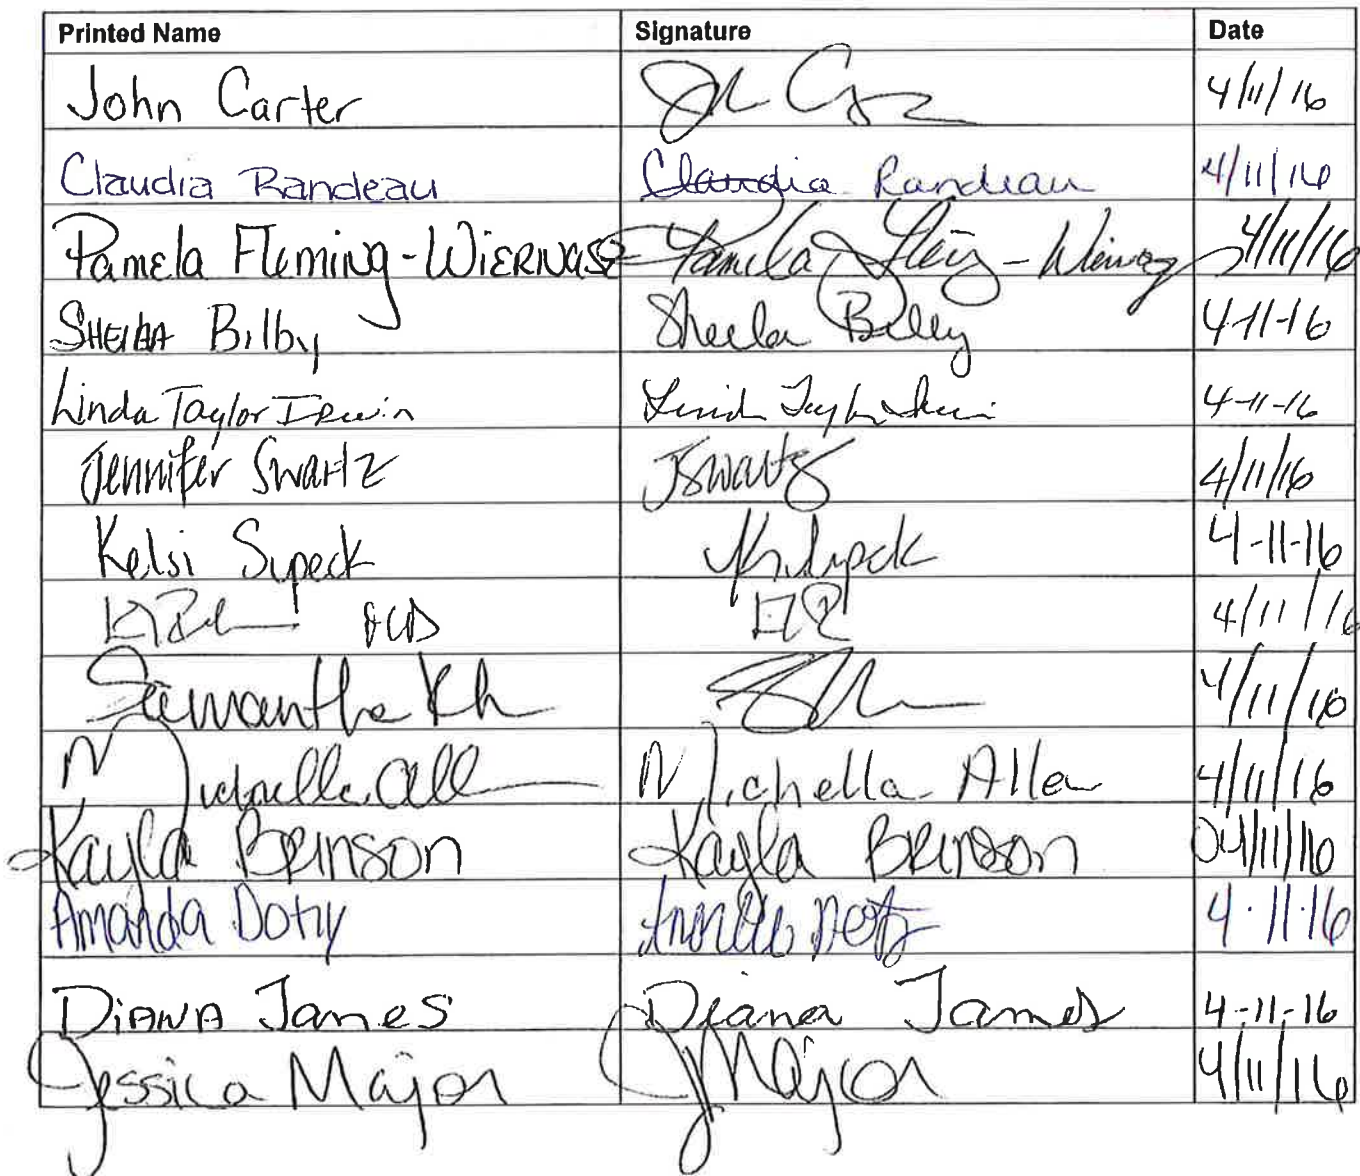 Printed Name Signature Date
John Carter 4/11/16
Claudia Randeau Claudia Randeau 4/11/16
Pamela Fleming-Wiernasz Pamela 4/11/16
Sheila Bilby Sheila Bilby 4-11-16
Linda Taylor Irwin 4-11-16
Jennifer Swartz JSwartz 4/11/16
Kelsi Supeck 4-11-16
4/11/16
Samantha 4/11/16
Michelle Michelle Allen 4/11/16
Kayla Brinson Kayla Brinson 04/11/16
Amanda Doty 4·11·16
DiANA James Diana James 4-11-16
Jessica Major JMajor 4/11/16